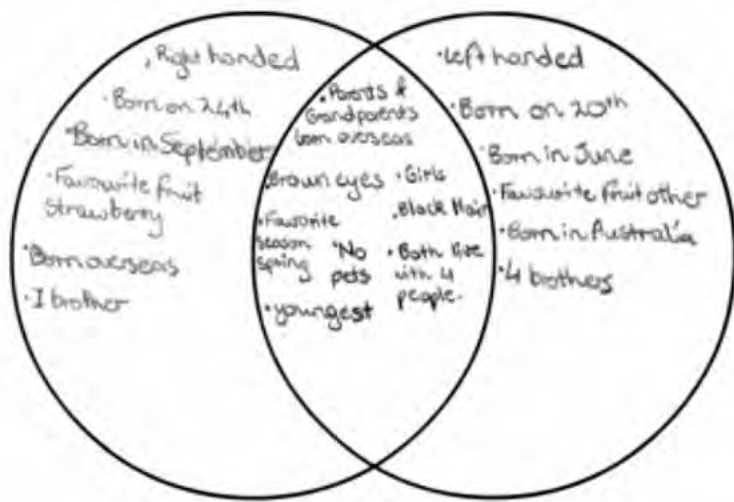 Right handed
Born on 24th
Born in September
Favourite fruit
Strawberry
Born overseas
1 brother
Parents &
Grandparents
born overseas
Brown eyes
Girls
Favorite
season
spring
Black Hair
No
pets
Both live
with 4
people.
youngest
Left handed
Born on 20th
Born in June
Favourite fruit other
Born in Australia
4 brothers